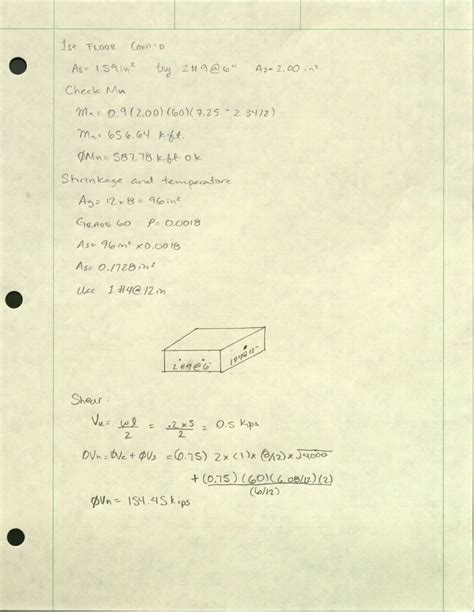 1st FLOOR CONT'D
As = 1.59 in² try 2#9@6" As = 2.00 in²
Check Mn
Mn = 0.9(2.00)(60)(7.25 - 2.34/2)
Mn = 656.64 k·ft
ØMn = 587.78 k·ft ok
Shrinkage and temperature
Ag = 12 x 8 = 96 in²
GRADE 60 P = 0.0018
As = 96 in² x 0.0018
As = 0.1728 in²
Use 1 #4@12 in
2 #9@6" 1#4@12"
Shear:
Vu = wl/2 = .2 x 5/2 = 0.5 Kips
ØVn = ØVc + ØVs = (0.75) 2 x (1) x (8/12) x √4000
+ (0.75)(60)(6.08/12)(2)/(6/12)
ØVn = 154.45 Kips